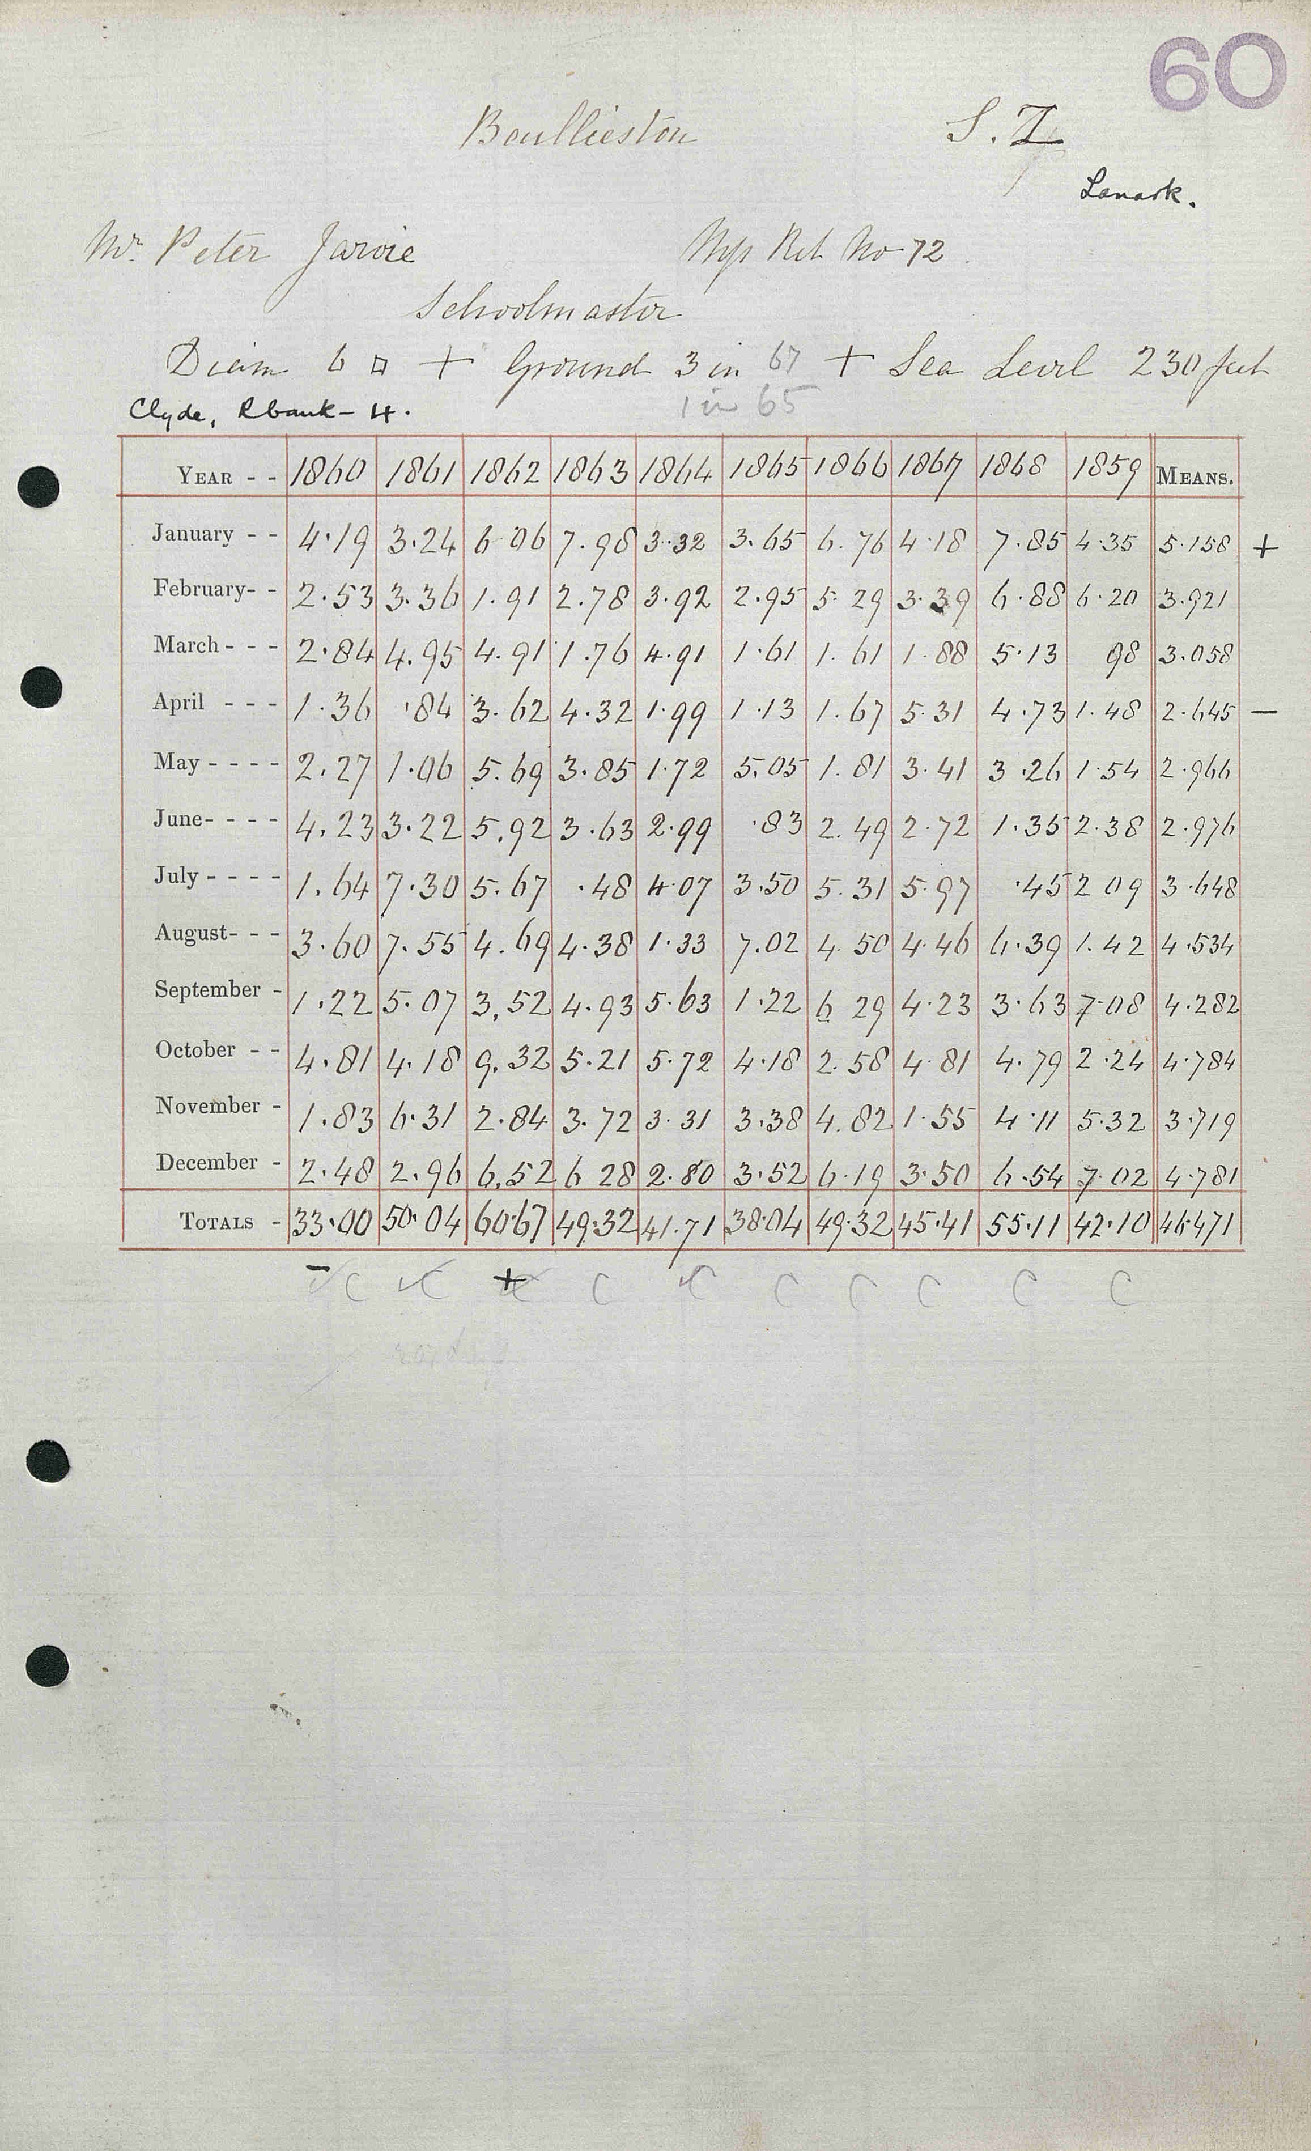 60
Baillieston S. 7
Lanark.
Mr. Peter Jarvie No 72
Schoolmaster
Diam 6 □ + Ground 3 in 67 + Sea Level 230 feet
Clyde, Rbank - 4. 1 in 65
YEAR - - 1860 1861 1862 1863 1864 1865 1866 1867 1868 1859 MEANS.
January - - 4.19 3.24 6.06 7.98 3.32 3.65 6.76 4.18 7.85 4.35 5.158 +
February- - 2.53 3.36 1.91 2.78 3.92 2.95 5.29 3.39 6.88 6.20 3.921
March - - - 2.84 4.95 4.91 1.76 4.91 1.61 1.61 1.88 5.13 98 3.058
April - - - 1.36 .84 3.62 4.32 1.99 1.13 1.67 5.31 4.73 1.48 2.645 —
May - - - - 2.27 1.06 5.69 3.85 1.72 5.05 1.81 3.41 3.26 1.54 2.966
June- - - - 4.23 3.22 5.92 3.63 2.99 .83 2.49 2.72 1.35 2.38 2.976
July - - - - 1.64 7.30 5.67 .48 4.07 3.50 5.31 5.97 .45 2 09 3.648
August- - - 3.60 7.55 4.69 4.38 1.33 7.02 4.50 4.46 6.39 1.42 4.534
September - 1.22 5.07 3.52 4.93 5.63 1.22 6 29 4.23 3.63 7.08 4.282
October - - 4.81 4.18 9.32 5.21 5.72 4.18 2.58 4.81 4.79 2.24 4.784
November - 1.83 6.31 2.84 3.72 3.31 3.38 4.82 1.55 4.11 5.32 3.719
December - 2.48 2.96 6.52 6 28 2.80 3.52 6.19 3.50 6.54 7.02 4.781
TOTALS - 33.00 50.04 60.67 49.32 41.71 38.04 49.32 45.41 55.11 42.10 46.471
- C C + C C C C C C C C